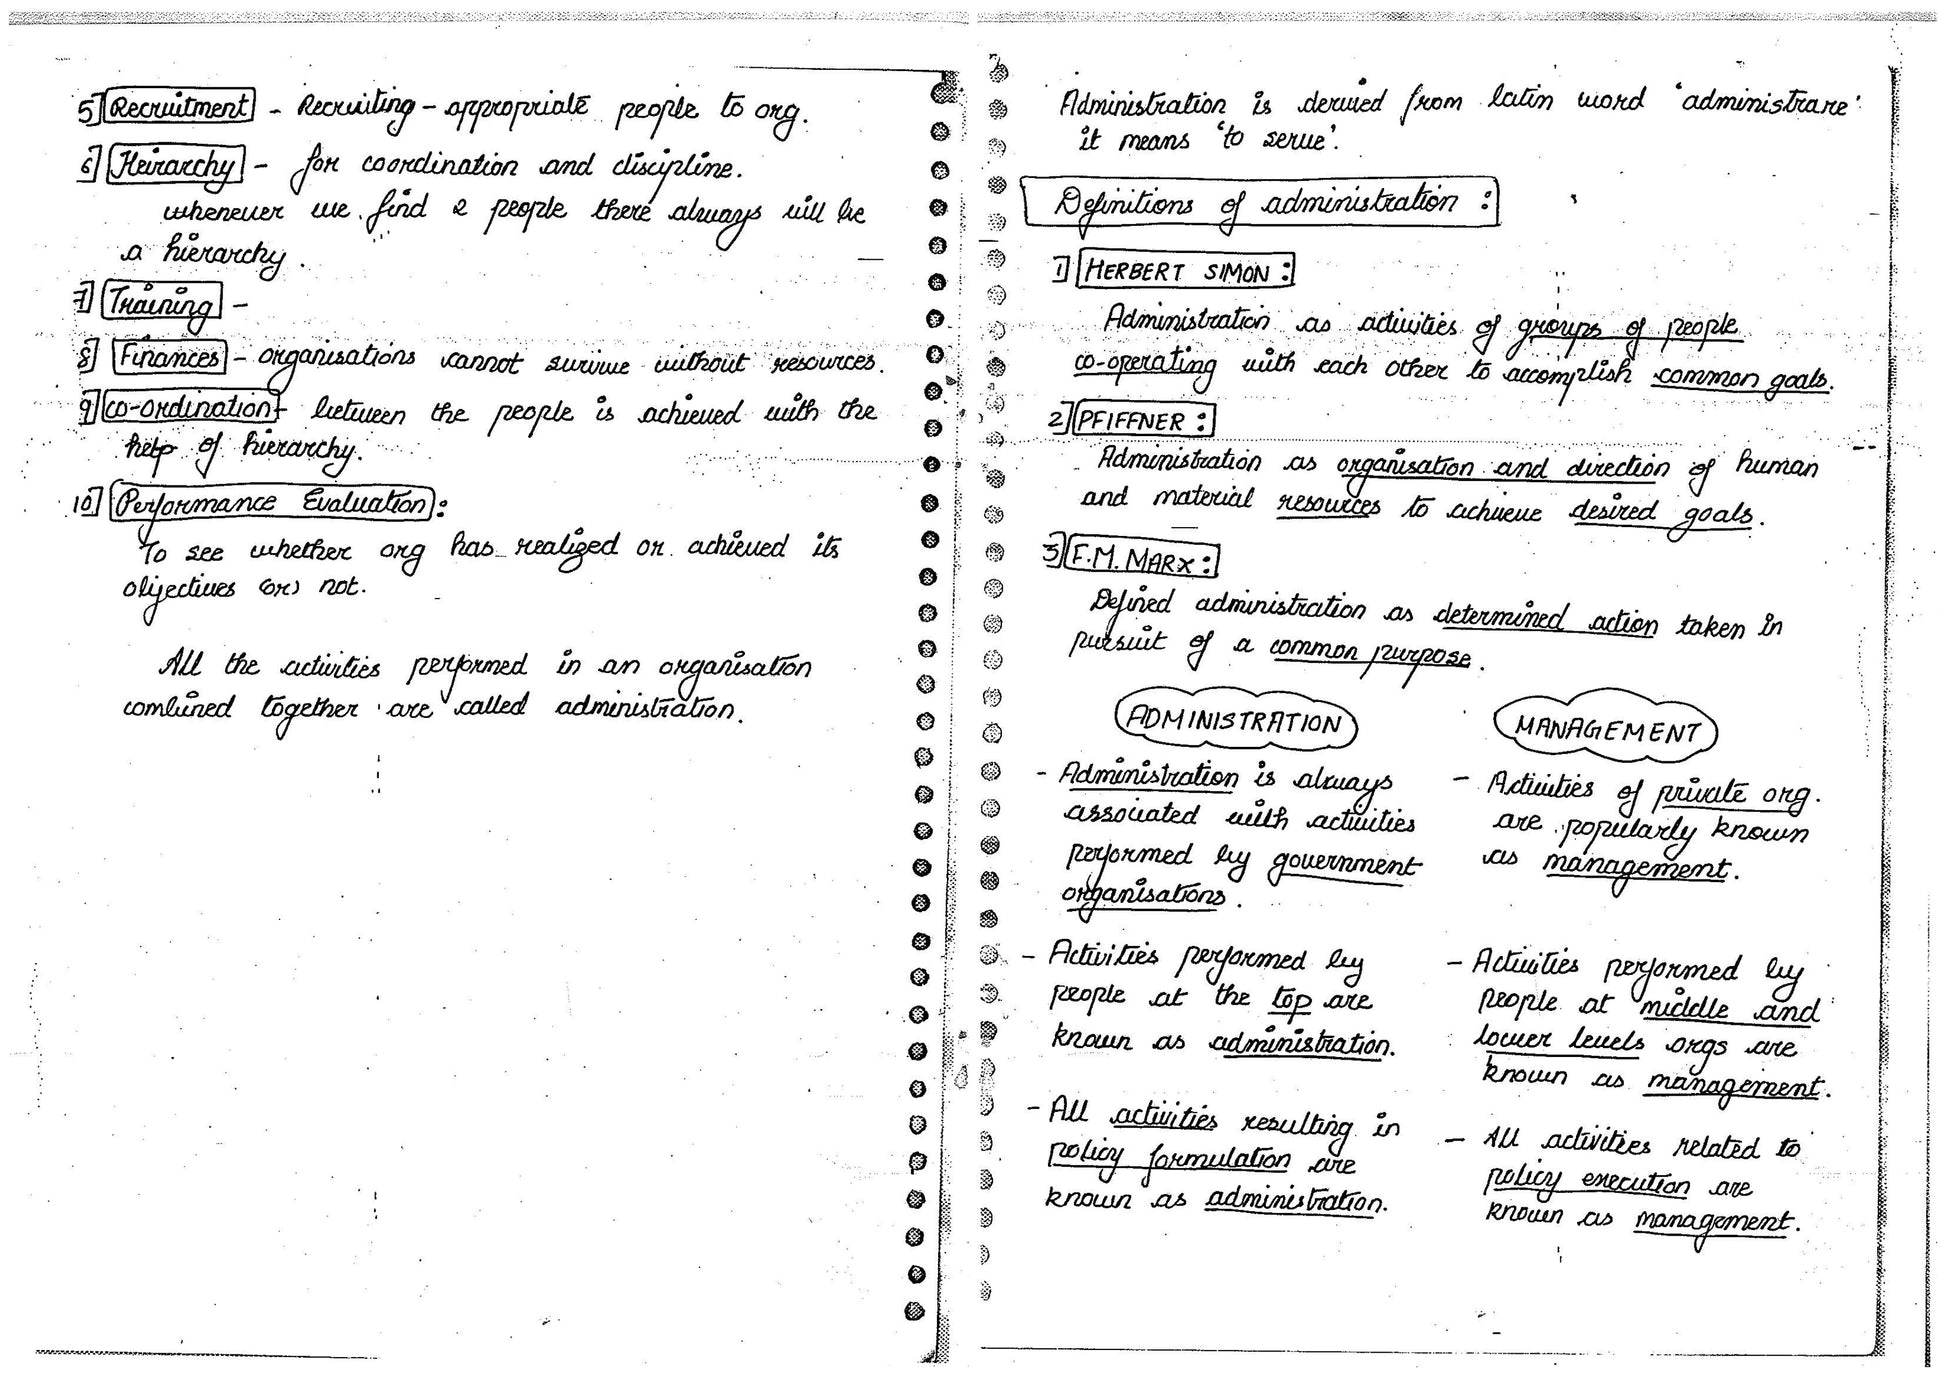 5] Recruitment - Recruiting - appropriate people to org.
6] Heirarchy - for coordination and discipline.
whenever we find 2 people there always will be
a hierarchy.
7] Training -
8] Finances - organisations cannot survive without resources.
9] co-ordination - between the people is achieved with the
help of hierarchy.
10] Performance Evaluation :
To see whether org has realized or achieved its
objectives (or) not.
All the activities performed in an organisation
combined together are called administration.
Administration is derived from latin word 'administrare'
it means 'to serve'.
Definitions of administration :
1] HERBERT SIMON :
Administration as activities of groups of people
co-operating with each other to accomplish common goals.
2] PFIFFNER :
Administration as organisation and direction of human
and material resources to achieve desired goals.
3] F.M. MARX :
Defined administration as determined action taken in
pursuit of a common purpose.
ADMINISTRATION
- Administration is always
associated with activities
performed by government
organisations.
- Activities performed by
people at the top are
known as administration.
- All activities resulting in
policy formulation are
known as administration.
MANAGEMENT
- Activities of private org.
are popularly known
as management.
- Activities performed by
people at middle and
lower levels orgs are
known as management.
- All activities related to
policy execution are
known as management.